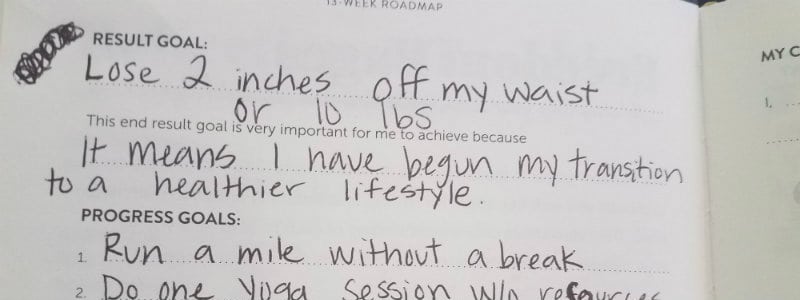 13-WEEK ROADMAP
RESULT GOAL:
Lose 2 inches off my waist
or 10 lbs
This end result goal is very important for me to achieve because
It means I have begun my transition
to a healthier lifestyle.
PROGRESS GOALS:
1. Run a mile without a break
2. Do one Yoga session w/o
MY C
1.